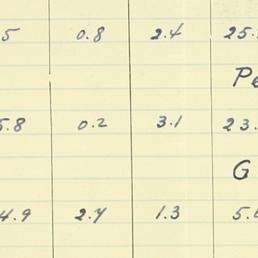 5 0.8 2.4 25.
Pe
5.8 0.2 3.1 23.
G
4.9 2.4 1.3 5.